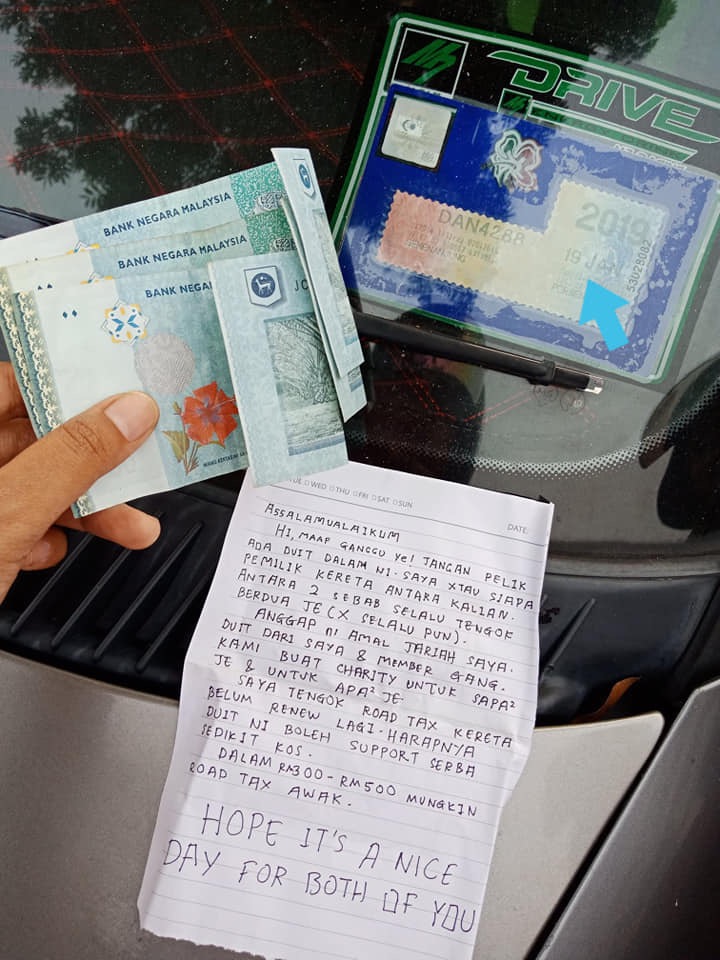 DRIVE
DAN4288
19 JAN
53028082
BANK NEGARA MALAYSIA
BANK NEGARA MALAYSIA
BANK NEGA
WED THU FRI SAT SUN
DATE:
ASSALAMUALAIKUM
HI, MAAP GANGGU YE! JANGAN PELIK
ADA DUIT DALAM NI. SAYA XTAU SIAPA
PEMILIK KERETA ANTARA KALIAN.
ANTARA 2 SEBAB SELALU TENGOK
BERDUA JE (X SELALU PUN).
ANGGAP NI AMAL JARIAH SAYA.
DUIT DARI SAYA & MEMBER GANG.
KAMI BUAT CHARITY UNTUK SAPA²
JE & UNTUK APA² JE.
SAYA TENGOK ROAD TAX KERETA
BELUM RENEW LAGI. HARAPNYA
DUIT NI BOLEH SUPPORT SERBA
SEDIKIT KOS.
DALAM RM300 - RM500 MUNGKIN
ROAD TAX AWAK.
HOPE IT'S A NICE
DAY FOR BOTH OF YOU